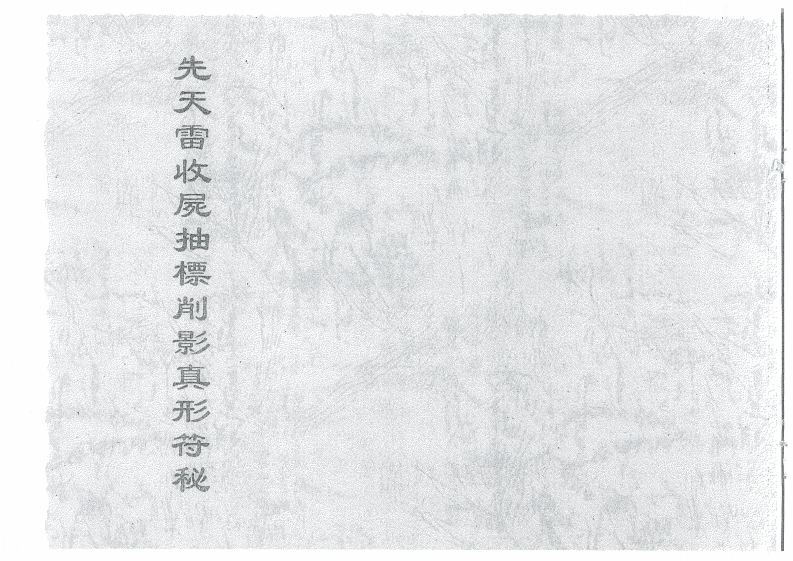 先天雷收屍抽標削影真形符秘